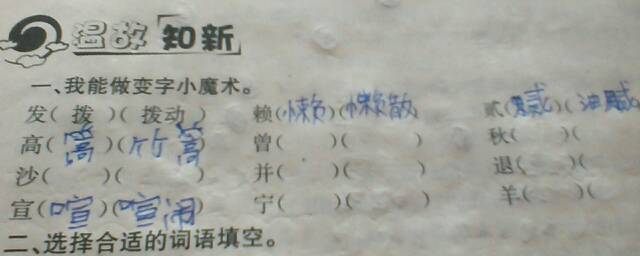 温故知新
一、我能做变字小魔术。
发( 拨 )( 拨动 ) 赖(懒)(懒散) 贰(腻)(油腻
高(篙)(竹篙) 曾( )( ) 秋( )(
沙( )( ) 并( )( ) 退( )(
宣(喧)(喧闹) 宁( )( ) 羊( )(
二、选择合适的词语填空。